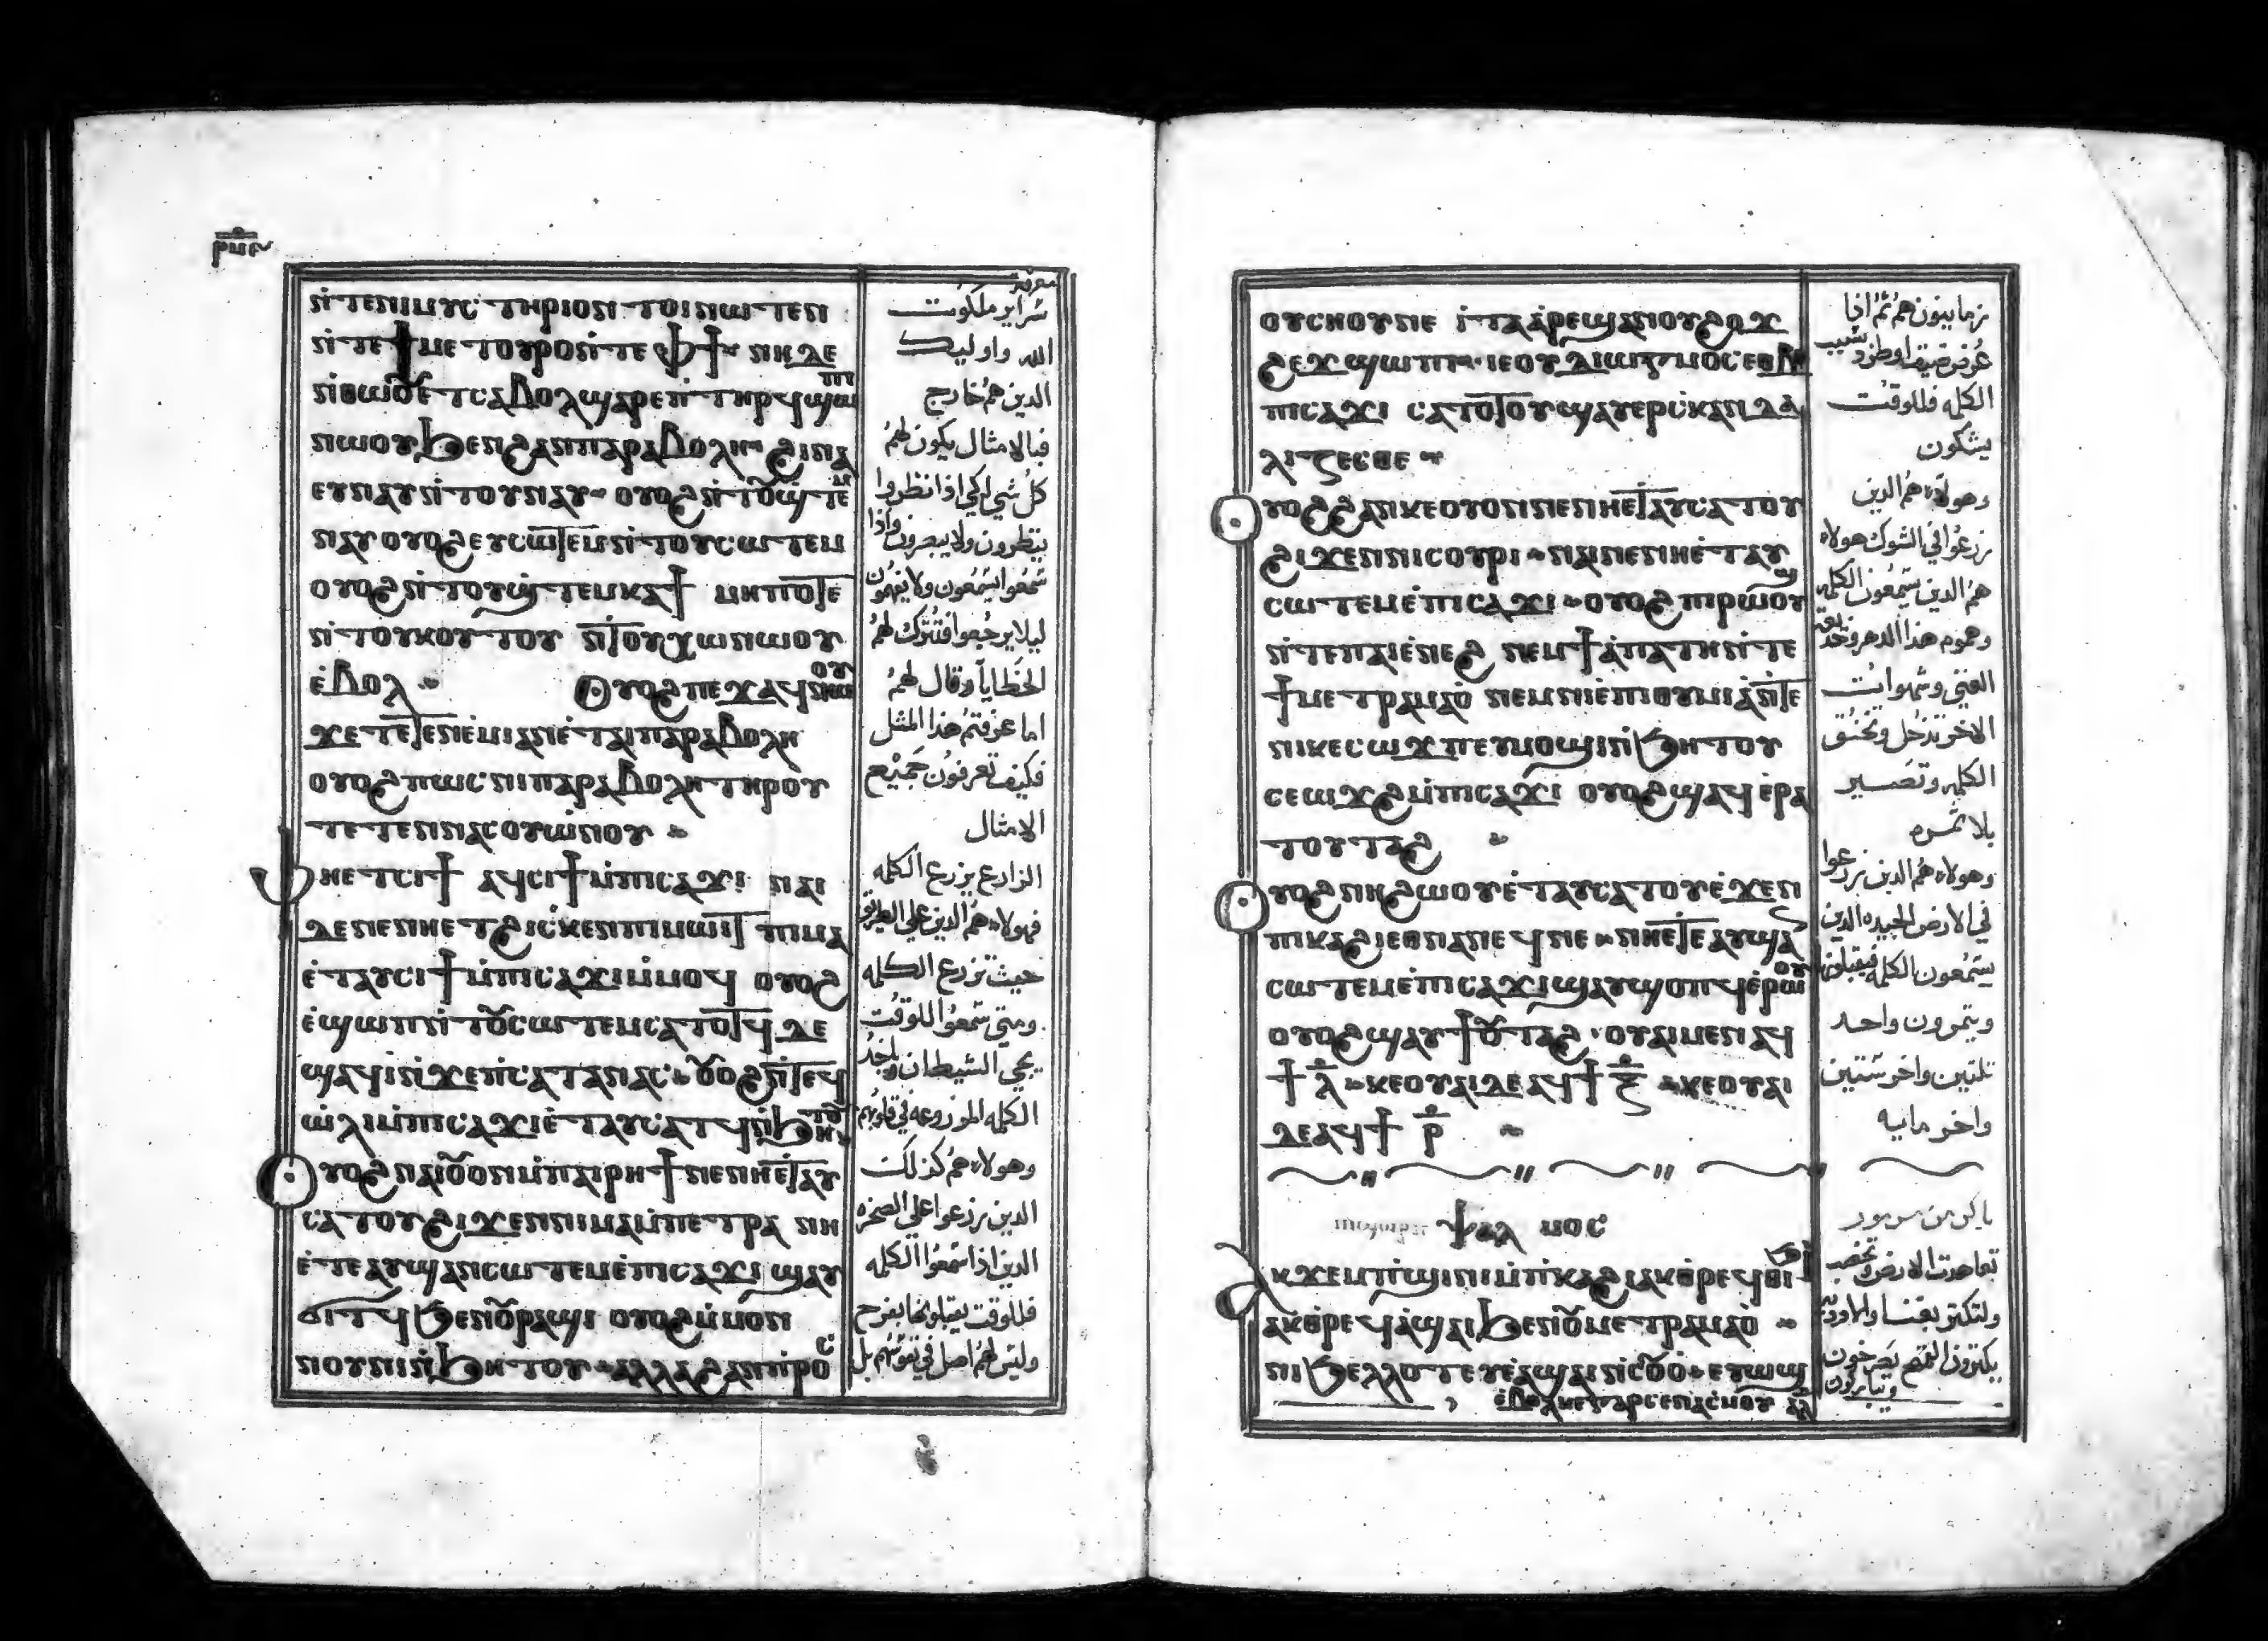 ⲛ̀ⲧⲉⲛⲓⲙⲩⲥⲧⲏⲣⲓⲟⲛ ⲧⲟⲓ ⲛⲱⲧⲉⲛ
ⲛ̀ⲧⲉϯⲙⲉⲧⲟⲩⲣⲟ ⲛ̀ⲧⲉ ⲫϯ ⲛⲏ ⲇⲉ
ⲛ̀ⲑⲱⲟⲩ ⲉⲧⲥⲁⲃⲟⲗ ϣⲁⲣⲉ ⲡⲧⲏⲣϥ ϣⲱⲡⲓ
ⲛⲱⲟⲩ ϧⲉⲛ ϩⲁⲛⲡⲁⲣⲁⲃⲟⲗⲏ ϩⲓⲛⲁ
ⲉⲩⲛⲁⲩ ⲛ̀ⲧⲟⲩⲛⲁⲩ ⲟⲩⲟϩ ⲛ̀ⲧⲟⲩϣ̀ⲧⲉⲙ
ⲛⲁⲩ ⲟⲩⲟϩ ⲉⲩⲥⲱⲧⲉⲙ ⲛ̀ⲧⲟⲩⲥⲱⲧⲉⲙ
ⲟⲩⲟϩ ⲛ̀ⲧⲟⲩϣ̀ⲧⲉⲙⲕⲁϯ ⲙⲏⲡⲟⲧⲉ
ⲛ̀ⲧⲟⲩⲕⲟⲩⲧⲟⲩ ⲛ̀ⲧⲟⲩⲭⲱ ⲛⲱⲟⲩ
ⲉ̀ⲃⲟⲗ Ⲟⲩⲟϩ ⲡⲉϫⲁϥ ⲛⲱⲟⲩ
ϫⲉ ⲧⲉⲧⲉⲛⲉ̀ⲙⲓ ⲁⲛ ⲉ̀ⲧⲁⲓⲡⲁⲣⲁⲃⲟⲗⲏ
ⲟⲩⲟϩ ⲡⲱⲥ ⲛⲓⲡⲁⲣⲁⲃⲟⲗⲏ ⲧⲏⲣⲟⲩ
ⲧⲉⲧⲉⲛⲛⲁⲥⲟⲩⲱ̀ⲛⲟⲩ
Ⲫⲏ ⲉⲧⲥⲓϯ ⲁϥⲥⲓϯ ⲙ̀ⲡⲓⲥⲁϫⲓ ⲛⲁⲓ
ⲇⲉ ⲛⲉ ⲛⲏ ⲉⲧϩⲓⲥⲕⲉⲛ ⲡⲓⲙⲱⲓⲧ ⲡⲓⲙⲁ
ⲉ̀ⲧⲁⲩⲥⲓϯ ⲙ̀ⲡⲓⲥⲁϫⲓ ⲙ̀ⲙⲟϥ ⲟⲩⲟϩ
ⲉ̀ϣⲱⲡ ⲛ̀ⲧⲟⲩⲥⲱⲧⲉⲙ ⲥⲁⲧⲟⲧϥ ⲇⲉ
ϣⲁϥⲓ̀ ⲛ̀ϫⲉ ⲡ̀ⲥⲁⲧⲁⲛⲁⲥ ⲟⲩⲟϩ ⲛ̀ⲧⲉϥ
ⲱ̀ⲗⲓ ⲙ̀ⲡⲓⲥⲁϫⲓ ⲉ̀ⲧⲁⲩⲥⲁⲧϥ ⲛ̀ϧⲏⲧⲟⲩ
Ⲟⲩⲟϩ ⲛⲁⲓ ⲟⲩⲟⲛ ⲙ̀ⲡⲁⲓⲣⲏϯ ⲛⲉ ⲛⲏ ⲉ̀ⲧⲁⲩ
ⲥⲁⲧⲟⲩ ϩⲓϫⲉⲛ ⲛⲓⲙⲁ ⲙ̀ⲡⲉⲧⲣⲁ ⲛⲏ
ⲉ̀ⲧⲉ ⲁⲩϣⲁⲛⲥⲱⲧⲉⲙ ⲉ̀ⲡⲓⲥⲁϫⲓ ϣⲁⲩ
ϭⲓⲧϥ ϧⲉⲛ ⲟⲩⲣⲁϣⲓ ⲟⲩⲟϩ ⲙ̀ⲙⲟⲛ
ⲛⲟⲩⲛⲓ ⲛ̀ϧⲏⲧⲟⲩ ⲁⲗⲗⲁ ϩⲁⲛⲡⲣⲟⲥ
شراير ملكوت
الله واوليك
الدين هم خارج
فبالامثال يكون لهم
كل شي لكي اذا نظروا
ينظرون ولا يبصرون واذا
سمعوا يسمعون ولا يفهمون
ليلا يرجعوا فتترك لهم
الخطايا وقال لهم
اما عرفتم هذا المثل
فكيف تعرفون جميع
الامثال
الزارع يزرع الكلمه
فهولاء هم الدين علي الطريق
حيث تزرع الكلمه
ومتي سمعوا للوقت
يجي الشيطان وياخد
الكلمه المزروعه في قلوبهم
وهولاء هم كذلك
الدين زرعوا علي الصخره
الدين اذا سمعوا الكلمه
فللوقت يقبلونها بفرح
وليس لهم اصل في نفوسهم بل
ⲟⲩⲥⲛⲟⲩ ⲛⲉ ⲓ̀ⲧⲁ ⲁⲣⲉϣⲁⲛ ⲟⲩϩⲟϫ
ϩⲉϫ ϣⲱⲡⲓ ⲓⲉ ⲟⲩⲇⲓⲱⲅⲙⲟⲥ ⲉⲑⲃⲉ
ⲡⲓⲥⲁϫⲓ ⲥⲁⲧⲟⲧⲟⲩ ϣⲁⲩⲉⲣⲥⲕⲁⲛⲇⲁ
ⲗⲓⲍⲉⲥⲑⲉ
Ⲟⲩⲟϩ ϩⲁⲛⲕⲉⲟⲩⲟⲛ ⲛⲉ ⲛⲏ ⲉⲧⲁⲩⲥⲁⲧⲟⲩ
ϩⲓϫⲉⲛ ⲛⲓⲥⲟⲩⲣⲓ ⲛⲁⲓ ⲛⲉ ⲛⲏ ⲉ̀ⲧⲁⲩ
ⲥⲱⲧⲉⲙ ⲉ̀ⲡⲓⲥⲁϫⲓ ⲟⲩⲟϩ ⲡⲓⲣⲱⲟⲩϣ
ⲛ̀ⲧⲉ ⲡⲁⲓⲉ̀ⲛⲉϩ ⲛⲉⲙ ϯⲁ̀ⲡⲁⲧⲏ ⲛ̀ⲧⲉ
ϯⲙⲉⲧⲣⲁⲙⲁⲟ̀ ⲛⲉⲙ ⲛⲓⲉ̀ⲡⲓⲑⲩⲙⲓⲁ̀ ⲛ̀ⲧⲉ
ⲛⲓⲕⲉⲥⲱϫⲡ ⲉⲩⲙⲟϣⲓ ⲛ̀ϧⲏⲧⲟⲩ
ⲥⲉⲱϫϩ ⲙ̀ⲡⲓⲥⲁϫⲓ ⲟⲩⲟϩ ϣⲁϥⲉⲣⲁ
ⲧⲟⲩⲧⲁϩ
Ⲟⲩⲟϩ ⲛⲏ ϩⲱⲟⲩ ⲉ̀ⲧⲁⲩⲥⲁⲧⲟⲩ ⲉ̀ϫⲉⲛ
ⲡⲓⲕⲁϩⲓ ⲉⲑⲛⲁⲛⲉϥ ⲛⲉ ⲛⲏ ⲉⲧⲉ ⲁⲩϣⲁⲛ
ⲥⲱⲧⲉⲙ ⲉ̀ⲡⲓⲥⲁϫⲓ ϣⲁⲩϣⲟⲡϥ ⲉ̀ⲣⲱⲟⲩ
ⲟⲩⲟϩ ϣⲁⲩϯⲟⲩⲧⲁϩ ⲟⲩⲁⲓ ⲙⲉⲛ ⲁϥ
ϯ ⲗ̅ ⲕⲉⲟⲩⲁⲓ ⲇⲉ ⲁϥϯ ⲝ̅ ⲕⲉⲟⲩⲁⲓ
ⲇⲉ ⲁϥϯ ⲣ̅
ⲯⲁⲗ ⲙⲟⲥ
Ⲁⲕϫⲉⲙⲡ̀ϣⲓⲛⲓ ⲙ̀ⲡ̀ⲕⲁϩⲓ ⲁⲕⲑⲣⲉϥⲑⲓϧⲓ
ⲁⲕⲑⲣⲉϥⲁ̀ϣⲁⲓ ϧⲉⲛ ⲟⲩⲙⲉⲧⲣⲁⲙⲁⲟ̀
ⲛⲓϧⲉⲗⲗⲟⲧ ⲉⲩⲉ̀ⲁϣⲁⲓ ⲛ̀ⲥⲟⲩⲟ ⲉⲩⲱϣ
ⲉ̀ⲃⲟⲗ
زمانيون هم ثم اذا
الكلمه فللوقت
يشكون
وهولاء هم الدين
زرعوا في الشوك هولاء
هم الدين يسمعون الكلمه
وهموم هذا الدهر وخديعة
الغني وشهوات
الاخر تدخل وتخنق
الكلمه وتصير
بلا ثمره
وهولاء هم الدين زرعوا
في الارض الجيده الدين
يسمعون الكلمه فيقبلونها
ويثمرون واحد
تلتين واخر ستين
واخر مايه